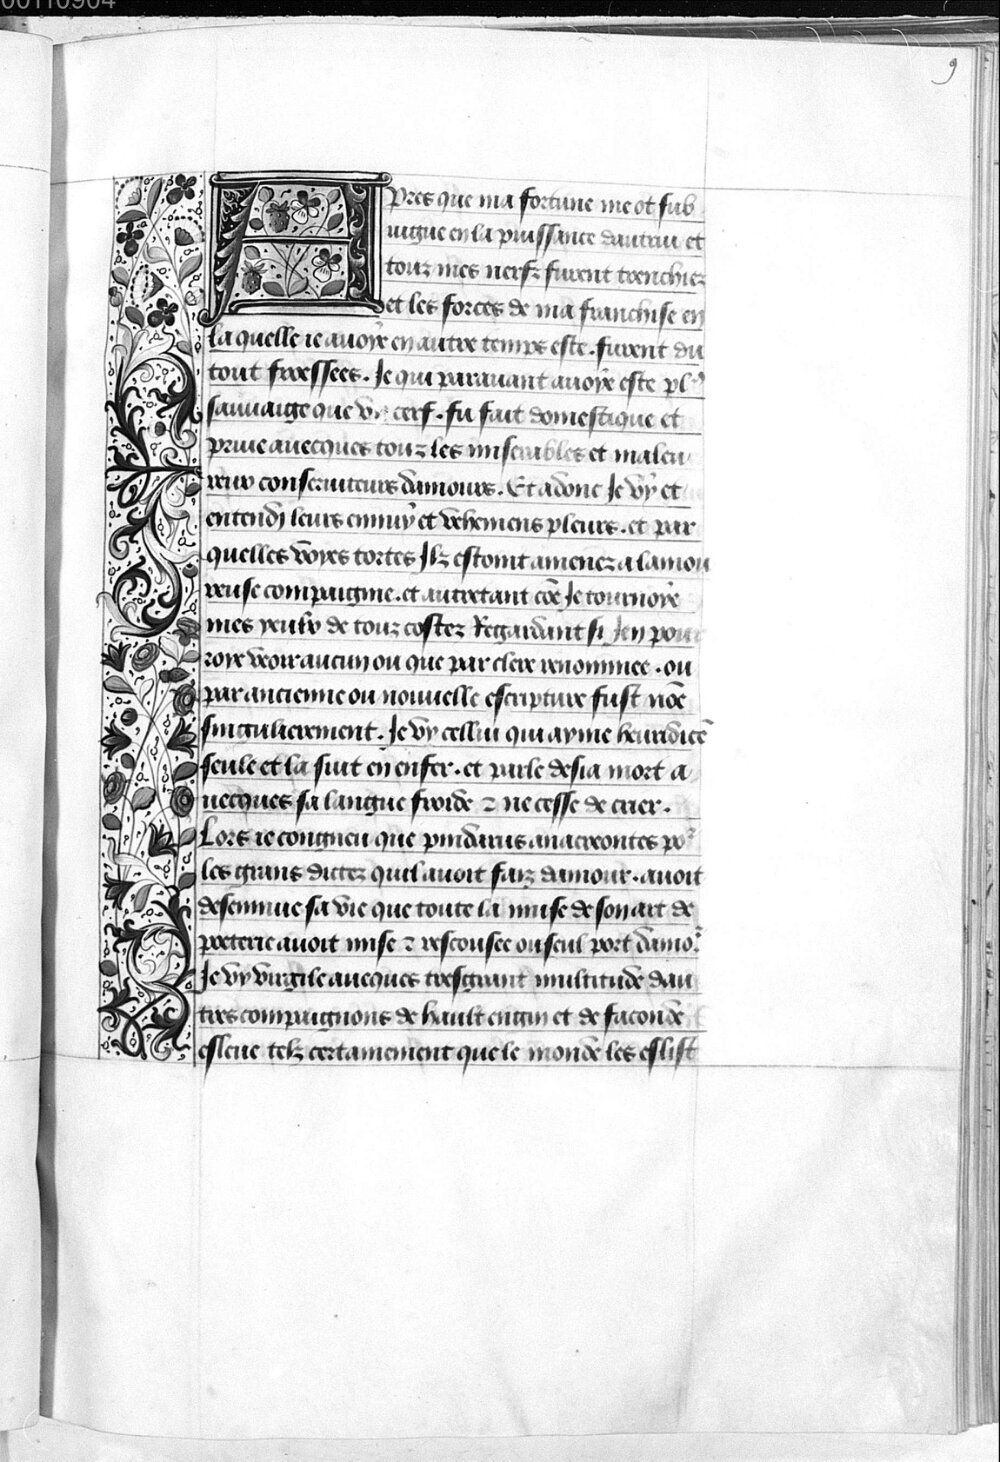 00110904
9
Apres que ma fortune meot sub
iugue en la puissance dautrui et
touz mes nerfz furent trenchiez
et les forces de ma franchise en
la quelle ie auoye en autre temps este . furent du
tout froessees . Je qui parauant auoye este pl9
sauuaige que vn cerf . fu fait domestique et
priue auecques touz les miserables et maleu
reux conseruiteurs damours . Et adonc Je vy et
entendi leurs ennuy et vehemens pleurs . et par
quelles voyes tortes Ilz estoint amenez a lamou
reuse compaignie . et autretant cõe Je tournoye
mes yeulx de touz costez Regardant si Jen pour
roye veoir aucun ou que par clere renommee . ou
par ancienne ou nouuelle escripture fust nõe
singulierement . Je vy cellui qui ayme heuridicẽ
seule et la suit en enfer . et parle desia mort a
uecques sa langue froide ⁊ ne cesse de crier .
Lors ie congneu que pindarus anacreontes poʳ
les grans dictez quil auoit faiz damour . auoit
desennuie sa vie que toute la muse de son art de
poeterie auoit mise ⁊ rescousee ou seul port damoʳ
Je vy virgile auecques tresgrant multitude dau
tres compaignons de hault engin et de faconde
esleue telz certainement que le monde les eslist